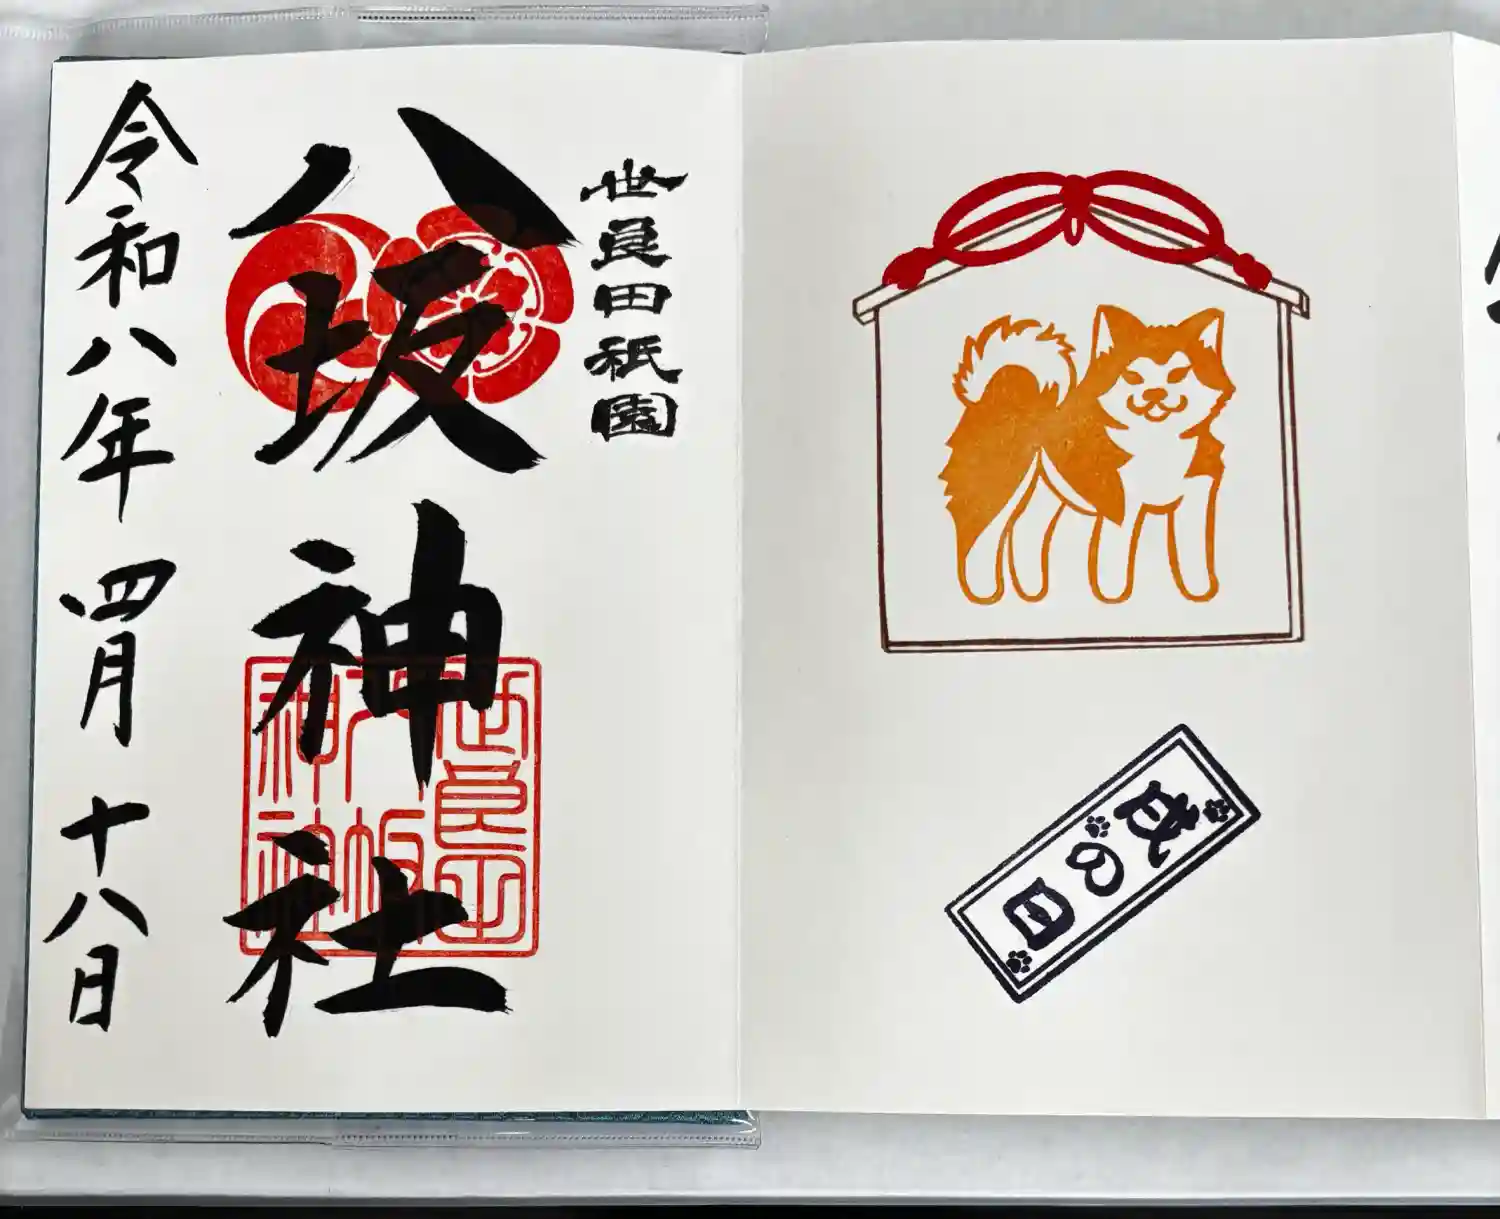 世良田祇園
八坂神社
令和八年 四月 十八日
世良田
八坂
神社
戌の日